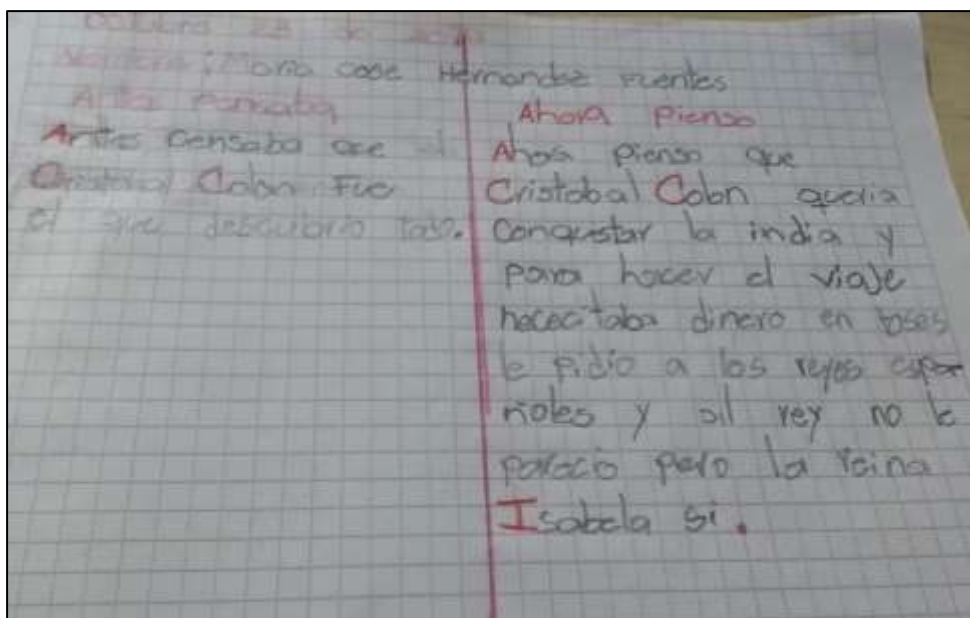 Octubre 23 de
Nombre: Maria Cose Hernandez Fuentes
Antes Pensaba
Antes Pensaba que
Cristobal Colon Fue
el que descubrio todo.
Ahora Pienso
Ahora Pienso que
Cristobal Colon queria
Conquistar la india y
para hacer el viaje
hececitaba dinero en toses
le pidio a los reyes espa
ñoles y al rey no le
parecio pero la reina
Isabela si.